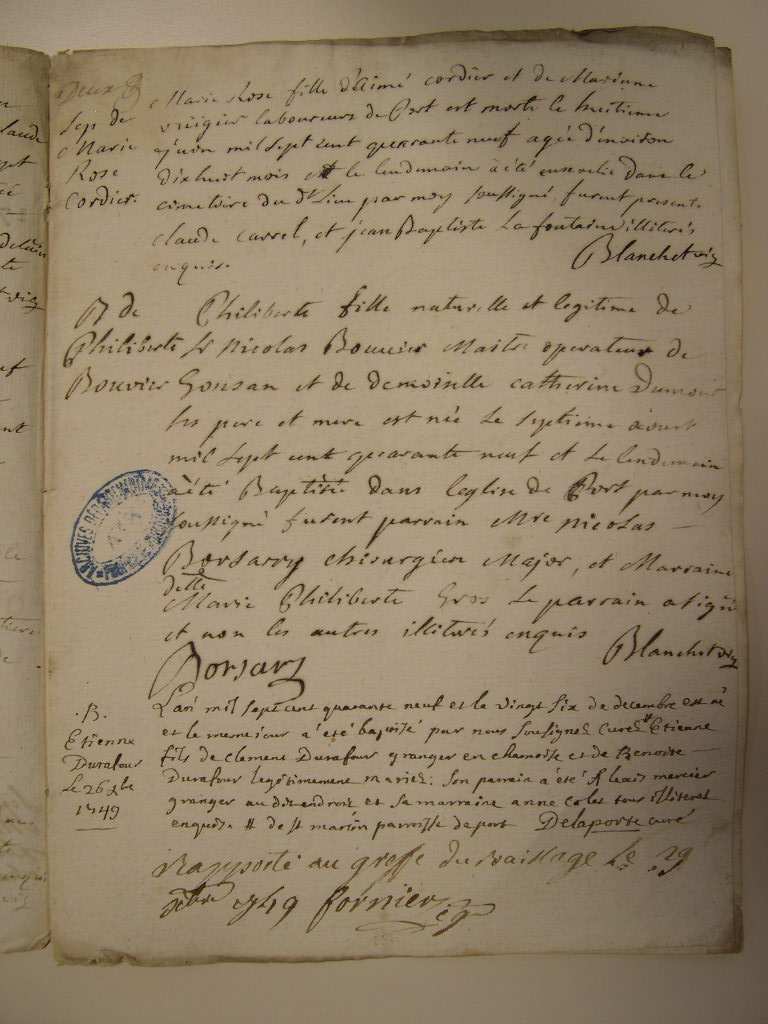 Sep de
Marie
Rose
Cordier.
Marie Rose fille d'aimé cordier et de Marianne
laboureurs de Port est morte le huitieme
juin mil sept cent quarante neuf agée d'environ
dixhuit mois et le lendemain à été ensevelie dans le
cimetoire du dt lieu par moy soussigné, furent presents
claude carrel, et jean Baptiste La fontaine illiterés
enquis.
Blanchet vic
B de
Philiberte
Bouvier
Philiberte fille naturelle et legitime de
Sr Nicolas Bouvier Maitre operateur de
et de demoiselle catherine
ses pere et mere est née le septieme aoust
mil sept cent quarante neuf et le lendemain
à été Baptisée dans leglise de Port par moy
soussigné furent parrain Mre nicolas
Borsarry chirurgien Major, et Marraine
delle
Marie Philiberte Gros le parrain a signé
et non les autres illiterés enquis
Blanchet vic
Borsary
.B.
Etienne
Durafour
Le 26 xbre
1749
L'an mil sept cent quarante neuf et le vingt six de decembre est né
et le meme jour a été baptisé par nous soussigné curé # Etienne
fils de clement Durafour granger en chamoise et de Benoite
Durafour legitimement mariez: son parrain a été mercier
granger au dit endroit et sa marraine anne colas tous illiteret
enquis. # de st martin parroisse de port Delaporte curé
Rapporté au greffe du Baillage Le 29
xbre 1749 fornier